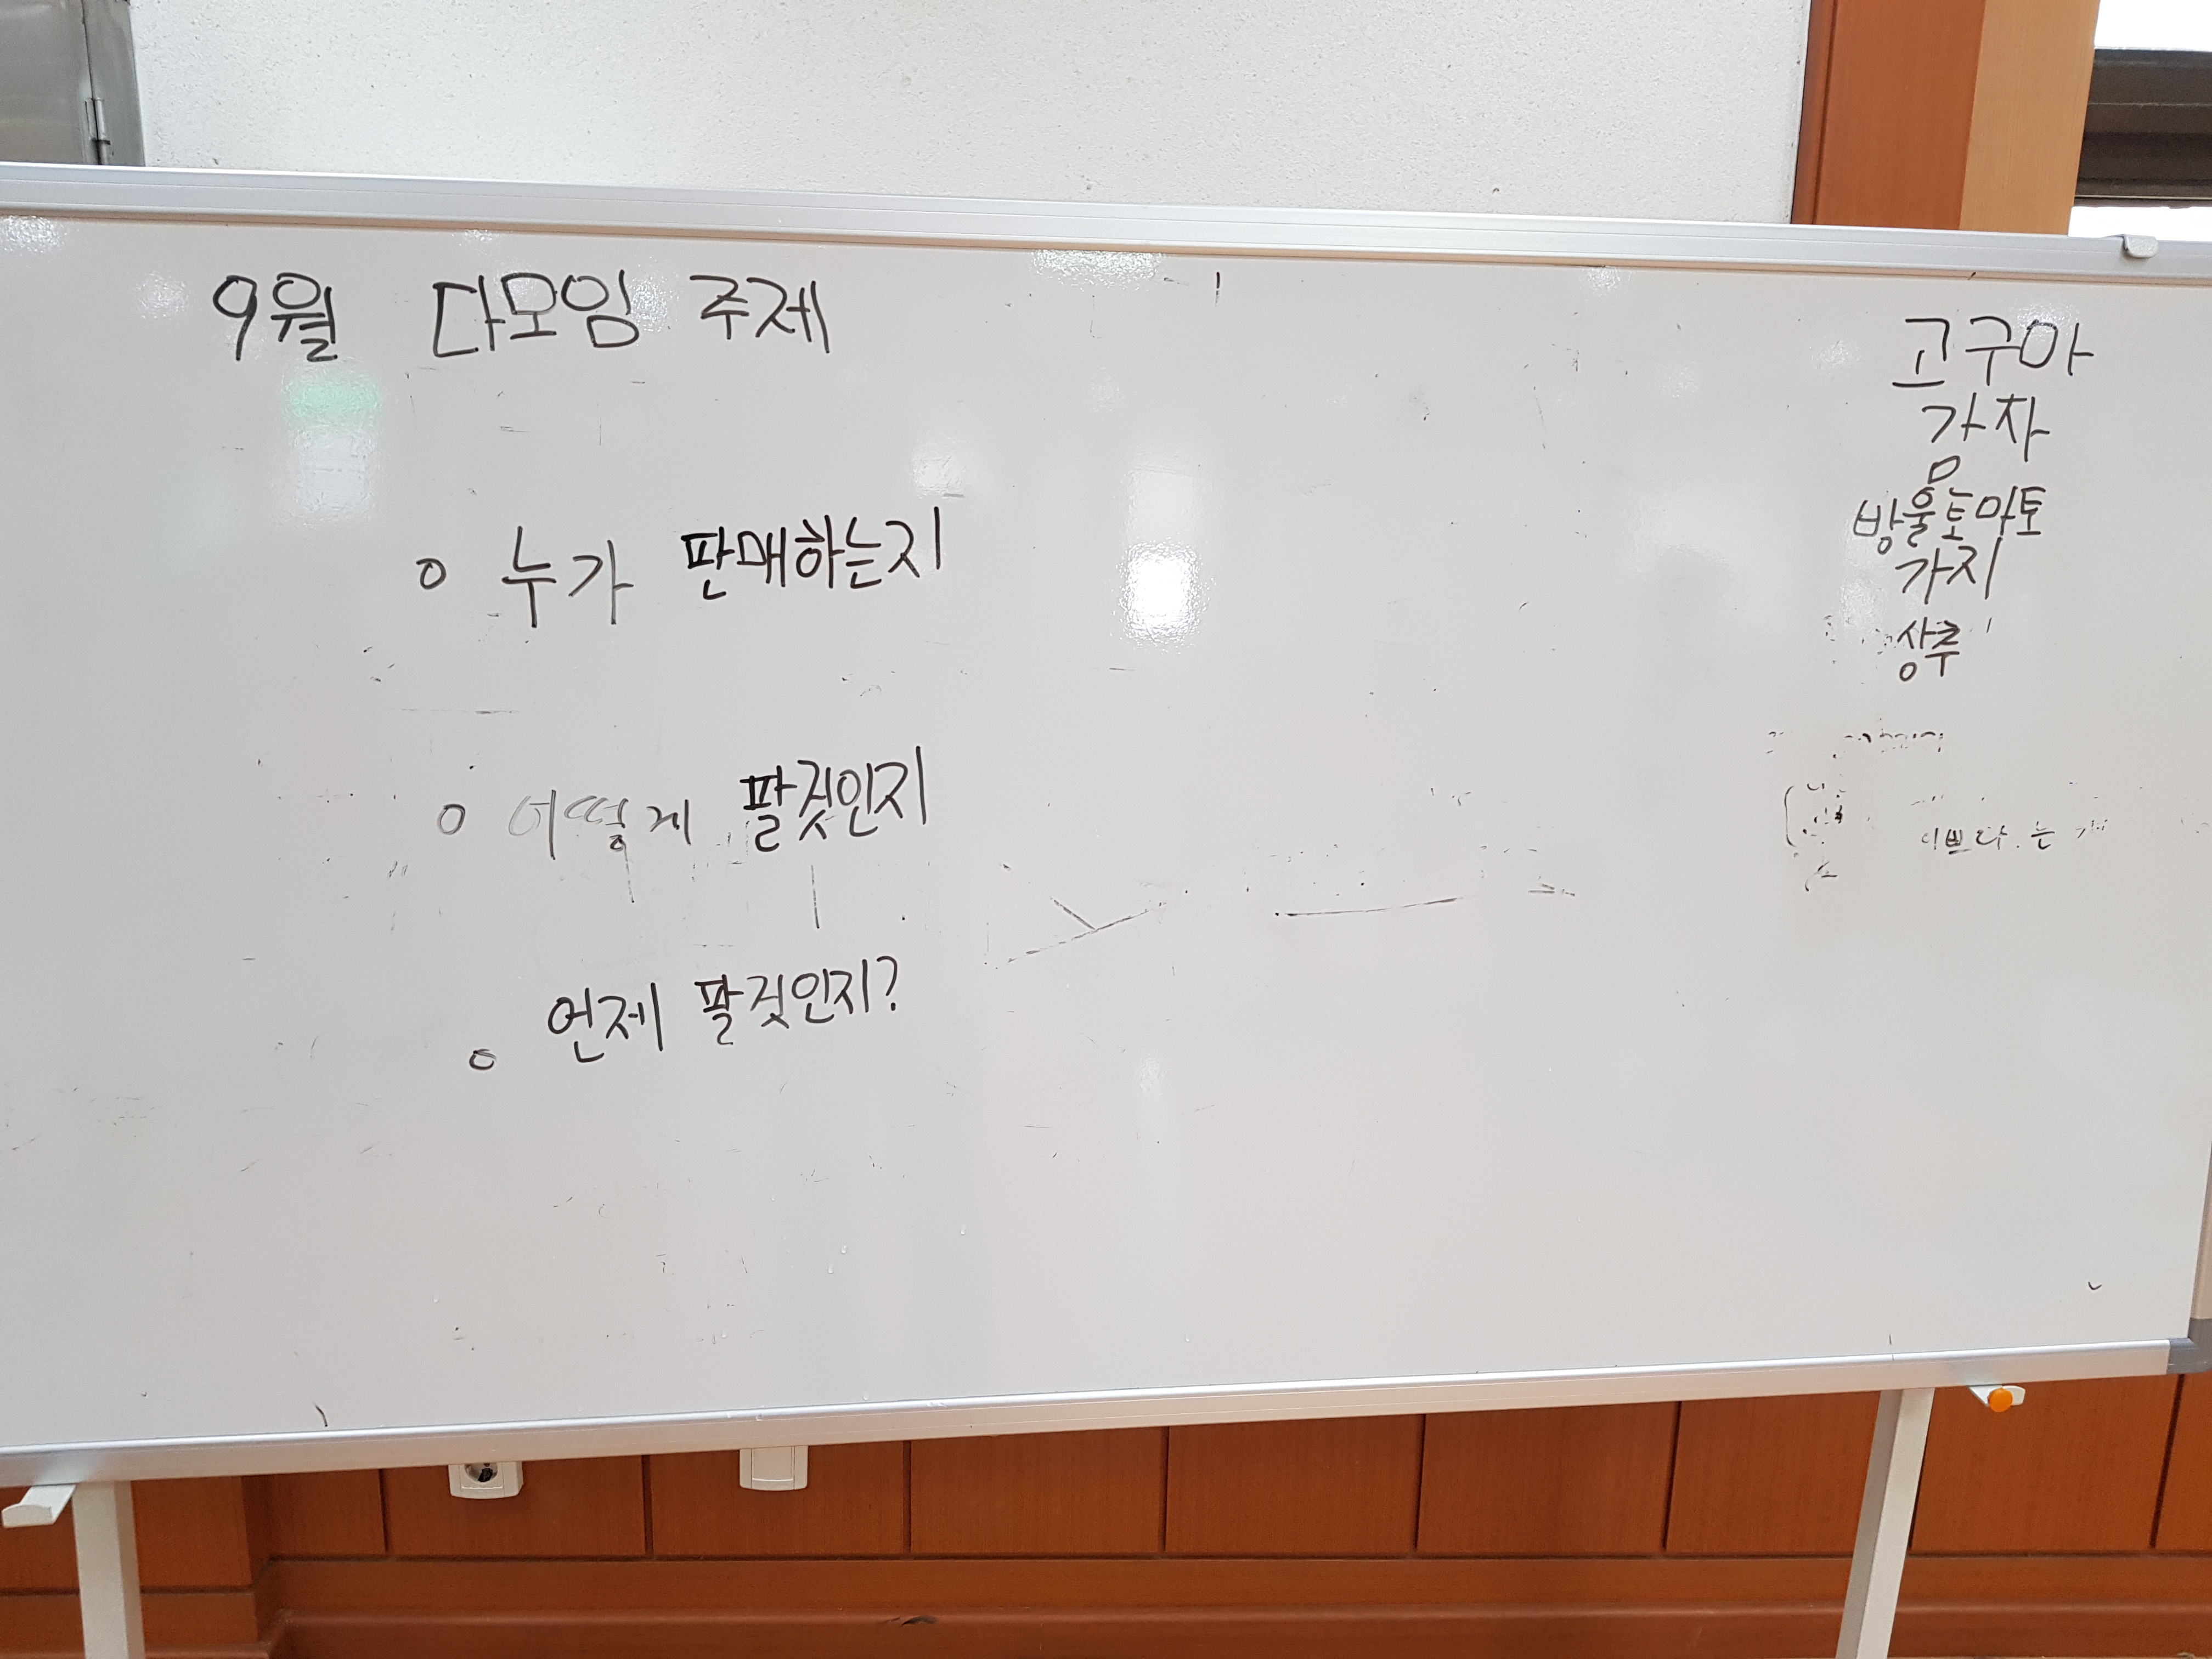 9월 다모임 주제
o 누가 판매하는지
o 어떻게 팔것인지
o 언제 팔것인지?
고구마
감자
방울토마토
가지
상추